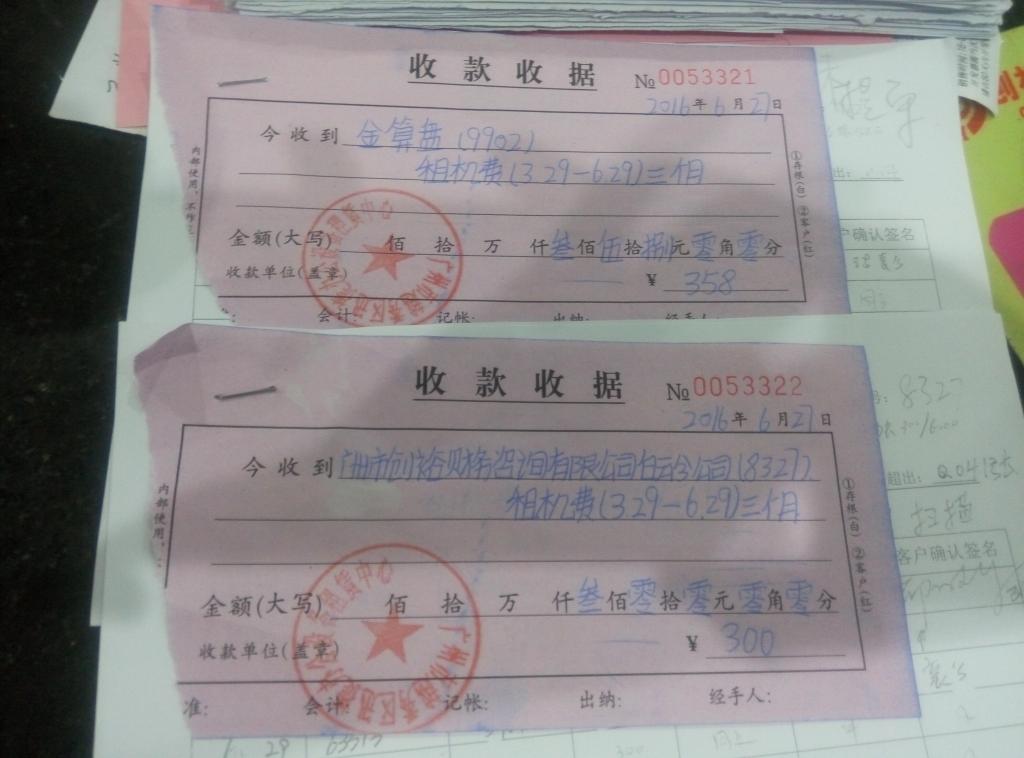 收款收据 №0053321
2016年6月27日
今收到 金算盘(9902)
租机费(3.29-6.29)三个月
金额(大写) 佰 拾 万 仟叁佰伍拾捌元零角零分
收款单位(盖章) ¥ 358
会计: 记帐: 出纳: 经手人:
①存根(白) ②客户(红)
内部使用,
收款收据 №0053322
2016年6月27日
今收到 广州市创裕财务咨询有限公司白云分公司(8327)
租机费(3.29-6.29)三个月
金额(大写) 佰 拾 万 仟叁佰零拾零元零角零分
收款单位(盖章) ¥ 300
准: 会计: 记帐: 出纳: 经手人:
①存根(白) ②客户(红)
内部使用,
租赁中心
广州市越秀区
户确认签名
8327
超出:
扫描
客户确认签名
29
300